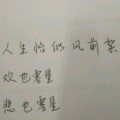 人生恰似风前絮
欢也零星
悲也零星